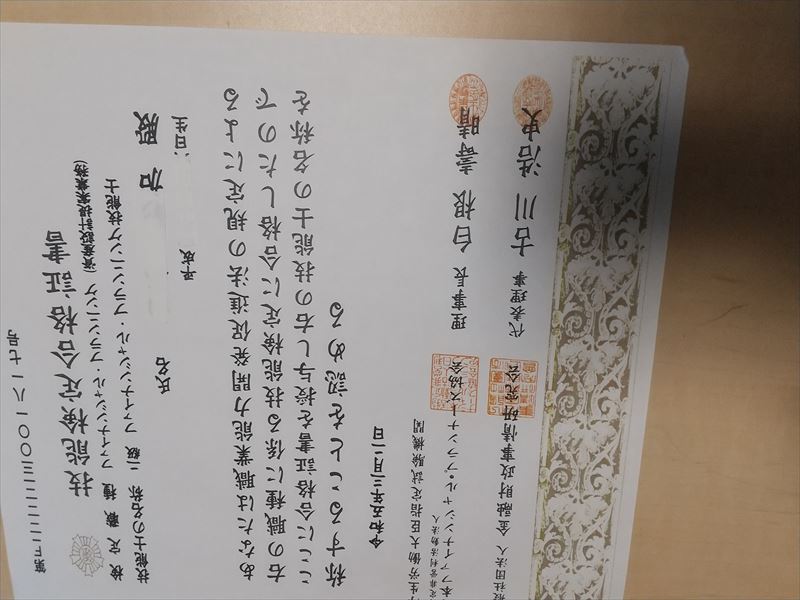 第F二二二二三〇〇一八一七号
技能検定合格証書
検定職種 ファイナンシャル・プランニング(資産設計提案業務)
技能士の名称 二級 ファイナンシャル・プランニング技能士
氏名 加 殿
平成 日生
あなたは職業能力開発促進法の規定による
右の職種に係る技能検定に合格したので
ここに合格証書を授与し右の技能士の名称を
称することを認める
令和五年三月二日
生労働大臣指定試験機関
定非営利活動法人
本ファイナンシャル・プランナーズ協会 理事長 白根壽晴
般社団法人 金融財政事情研究会 代表理事 古川浩史